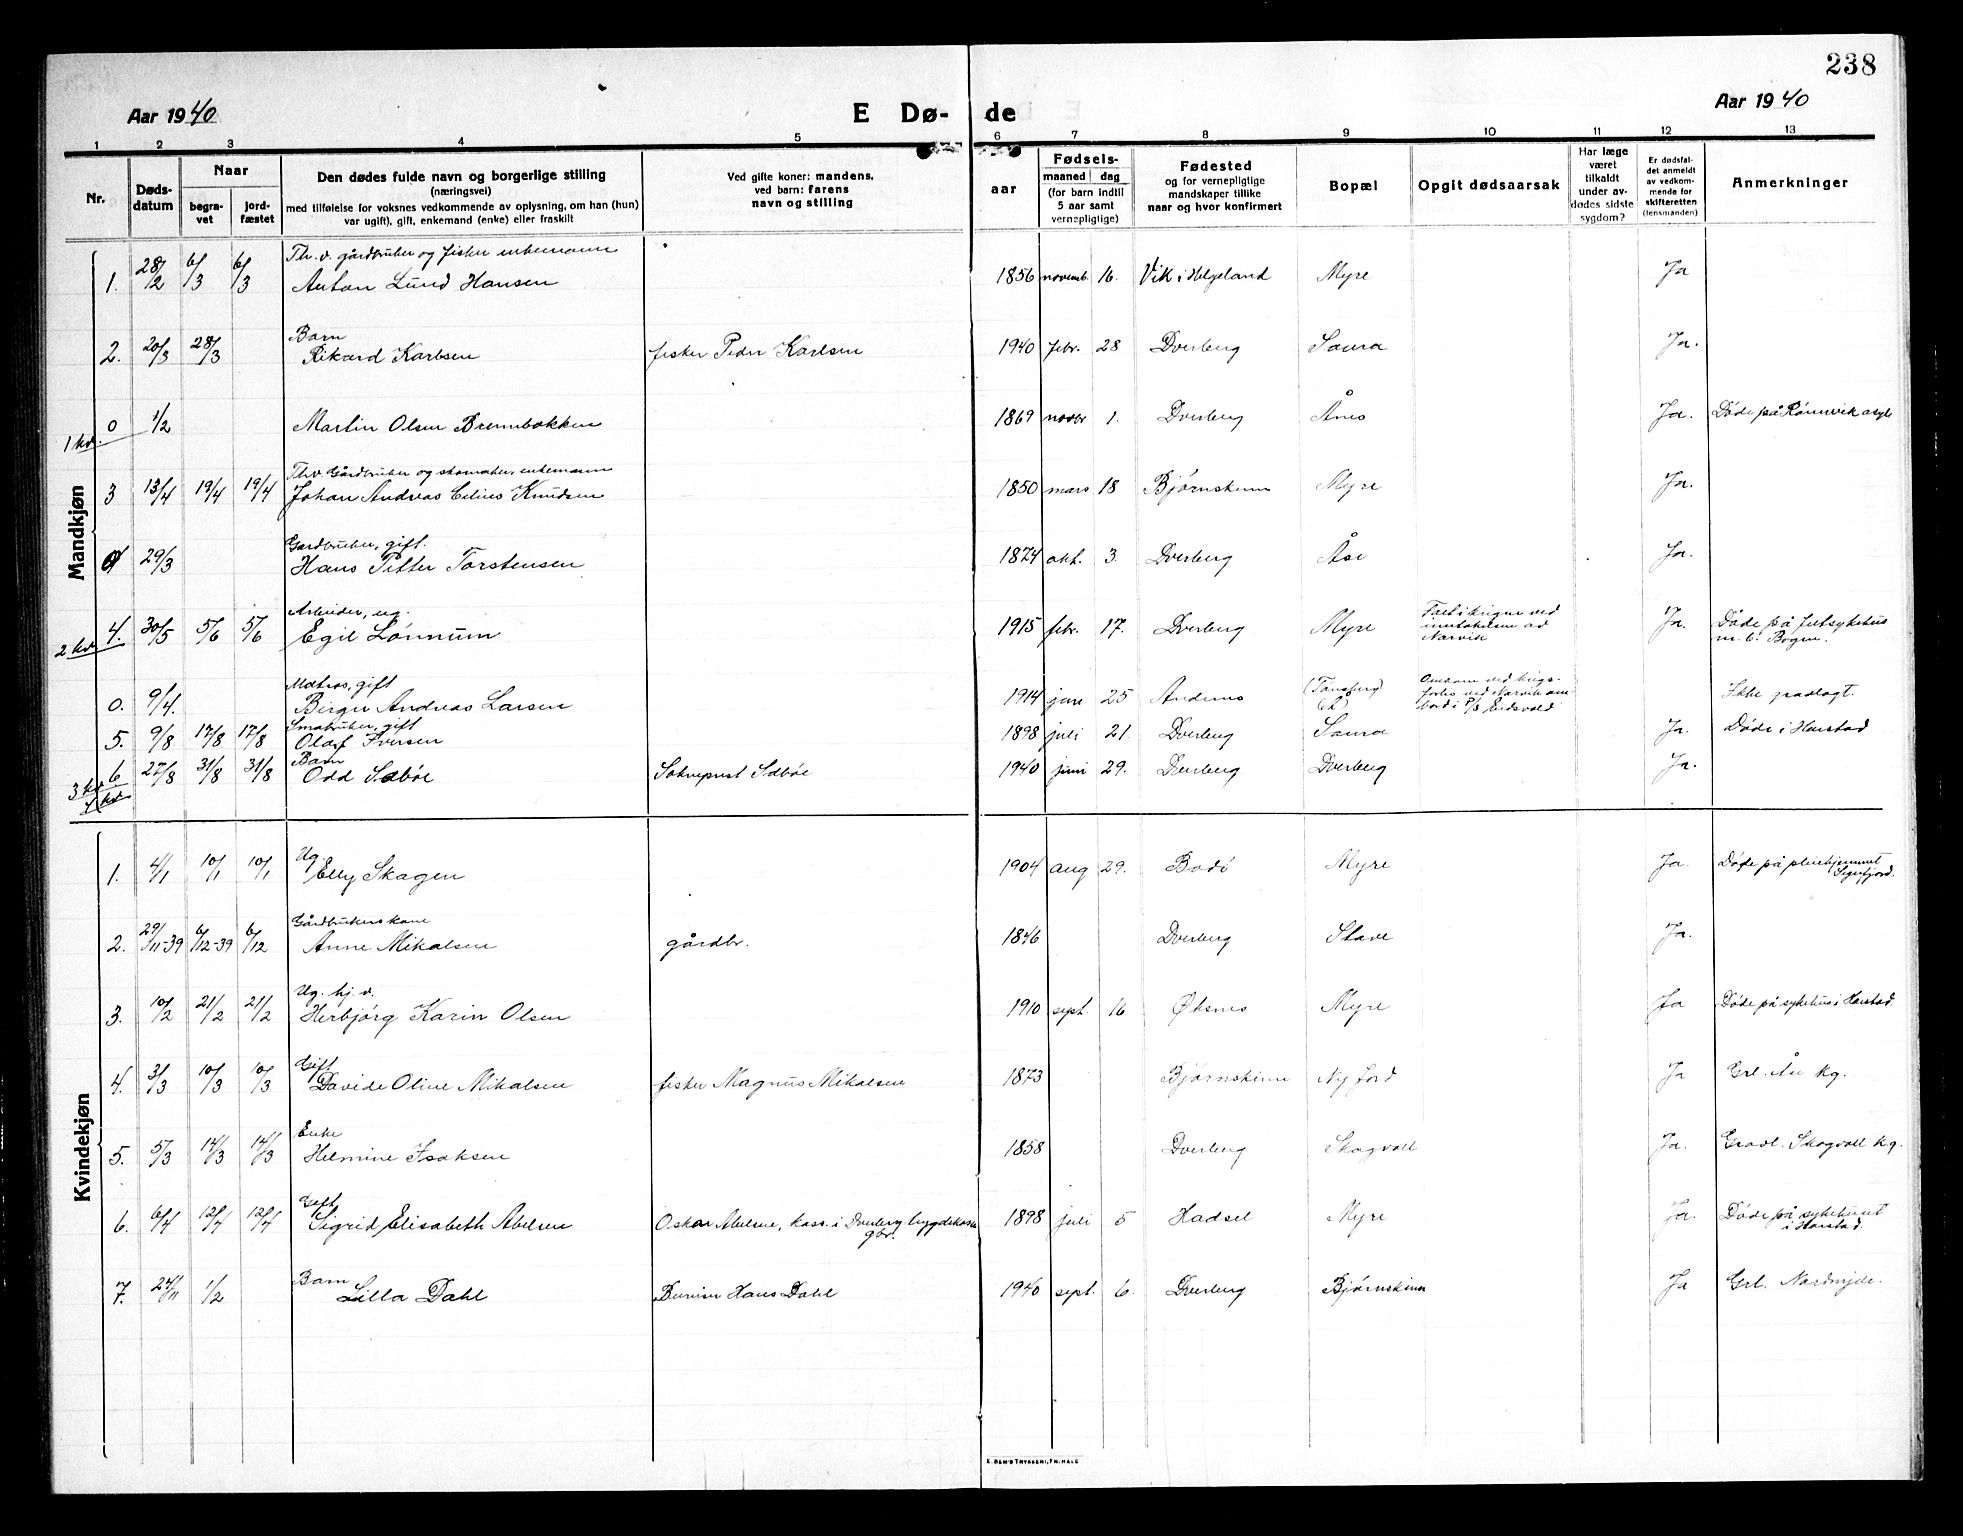 238
Aar 1940
E Dø-
de
Aar 1940
1 2 3 4 5 6 7 8 9 10 11 12 13
Nr.
Døds-
datum
Naar
begra-
vet
jord-
fæstet
Den dødes fulde navn og borgerlige stilling
(næringsvei)
med tilføielse for voksnes vedkommende av oplysning, om han (hun)
var ugift), gift, enkemand (enke) eller fraskilt
Ved gifte koner: mandens,
ved barn: farens
navn og stilling
aar
Fødsels-
maaned dag
(for barn indtil
5 aar samt
vernepligtige)
Fødested
og for vernepligtige
mandskaper tillike
naar og hvor konfirmert
Bopæl
Opgit dødsaarsak
Har læge
været
tilkaldt
under av-
dødes sidste
sygdom?
Er dødsfal-
det anmeldt
av vedkom-
mende for
skifteretten
(lensmanden)
Anmerkninger
Mandkjøn
Th. v. gårdbruker og fisker enkemann
1. 28/2 6/3 6/3 Anton Lund Hansen 1856 novemb. 16. Vik i Helgeland Myre Ja
Barn
2. 20/3 28/3 Rikard Karlsen fisker Peder Karlsen 1940 febr. 28 Dverberg Saura Ja.
0 1/2 Martin Olsen Brennbakken 1869 novbr 1. Dverberg Ånes Ja. Døde på Rønvik asyl
1 kv.
Thv. Gårdbruker og skomaker, enkemann
3 13/4 19/4 19/4 Johan Andreas Celius Knudsen 1850 mars 18 Bjørnskinn Myre Ja.
Gardbruker, gift.
0 29/3 Hans Petter Torstensen 1874 okt. 3. Dverberg Åse Ja.
Arbeider, ug.
4. 30/5 5/6 5/6 Egil Lønnum 1915 febr. 17. Dverberg Myre Falt i krigen ved
Narvik
Ja. Døde på feltsykehus
Bogen.
2 kv.
Matros, gift
0. 9/4. Birger Andreas Larsen 1914 jan 25 Andenes (Tønsberg) Omkom ved krigs-
forlis ved Narvik om-
bord i P/S Eidsvold
Ikke gravlagt.
Småbruker, gift
5. 9/8 17/8 17/8 Olaf Iversen 1898 juli 21 Dverberg Saura Ja. Døde i Harstad
Barn
6 27/8 31/8 31/8 Odd Sæbøe Sokneprest Sæbøe 1940 juni 29. Dverberg Dverberg Ja.
3 kv
4 kv.
Kvindekjøn
Ug.
1. 4/1 10/1 10/1 Elly Skagen 1904 aug 29. Bodö Myre Ja. Døde på pleiehjemmet
Sigerfjord.
Gårdbrukerskone
2. 29/11-39 6/12-39 6/12 Anne Mikalsen gårdbr. 1846 Dverberg Stave Ja.
Ug. hj. v.
3. 10/2 21/2 21/2 Herbjörg Karin Olsen 1910 sept. 16 Øksnes Myre Ja Døde på sykehus i Harstad.
Gift
4. 3/3 10/3 10/3 Davide Oline Mikalsen fisker Magnus Mikalsen 1873 Bjørnskinn Ny fjord Ja Grl. Åse kg.
Enke
5. 5/3 14/3 14/3 Helmine Isaksen 1858 Dverberg Skogvoll Ja. Gravl. Skogvoll kg.
Gift
6. 6/4 12/4 12/4 Sigrid Elisabeth Abelsen Oskar Abelsen, kass. i Dverberg bygdekasse
gbr.
1898 juli 5 Hadsel Myre Ja. Døde på sykehuset
i Harstad.
Barn
7. 24/11 1/2 Lilla Dahl Hans Dahl 1940 sept. 6. Dverberg Bjørnskinn Ja Grl. Nordmjele.
E. SEM'S TRYKKERI, FR.HALD